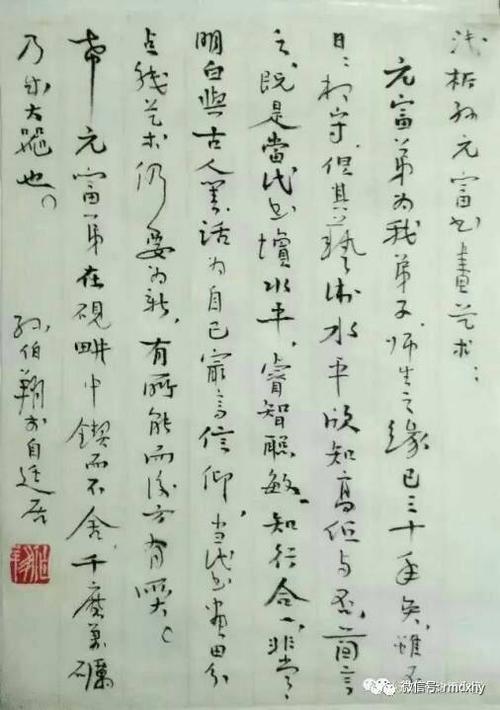 浅析孙元富书画艺术：
元富弟为我弟子，师生之缘已三十年矣，虽不
日日相守，但其艺术水平颇知高低与否，简言
之，既是当代书坛水平，睿智聪敏，知行合一，非常
明白与古人對话为自己最高信仰，当代书画
点线艺术仍要为新，有所能而后方有所大。
希元富弟在砚畊中鍥而不舍，千磨萬礪
乃成大器也。
孙伯翔於自逵居
微信号:rmdxhy